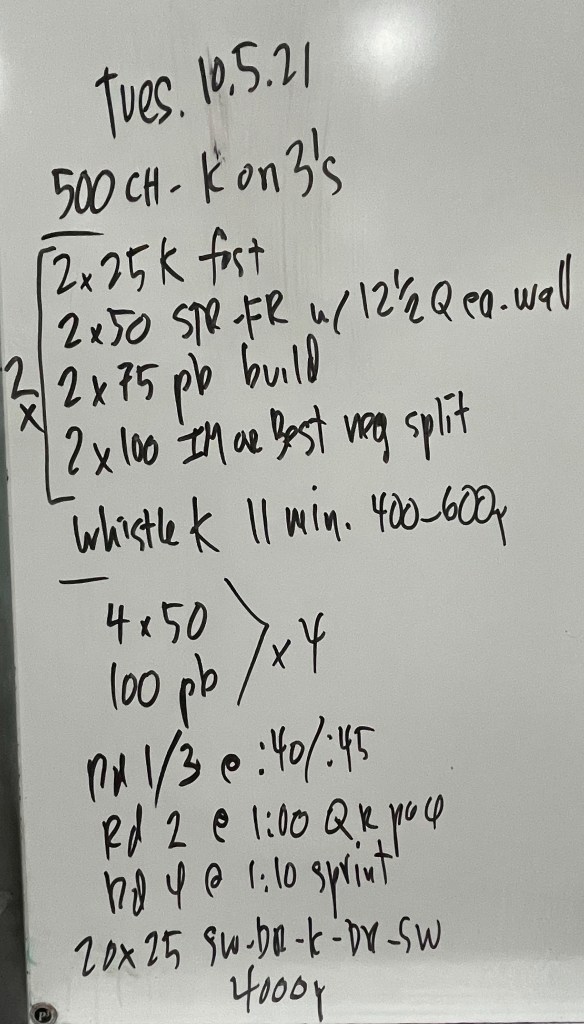 Tues. 10.5.21
500 CH - K on 3's
2x25 K fast
2x50 STR-FR w/ 12½ Q ea. wall
2x 2x75 pb build
2x100 IM or Best neg split
Whistle K 11 min. 400-600y
4x50
100 pb
x4
Rd 1/3 @ :40/:45
Rd 2 @ 1:00 QR pace
Rd 4 @ 1:10 sprint
20x25 SW-DR-K-DR-SW
4000y